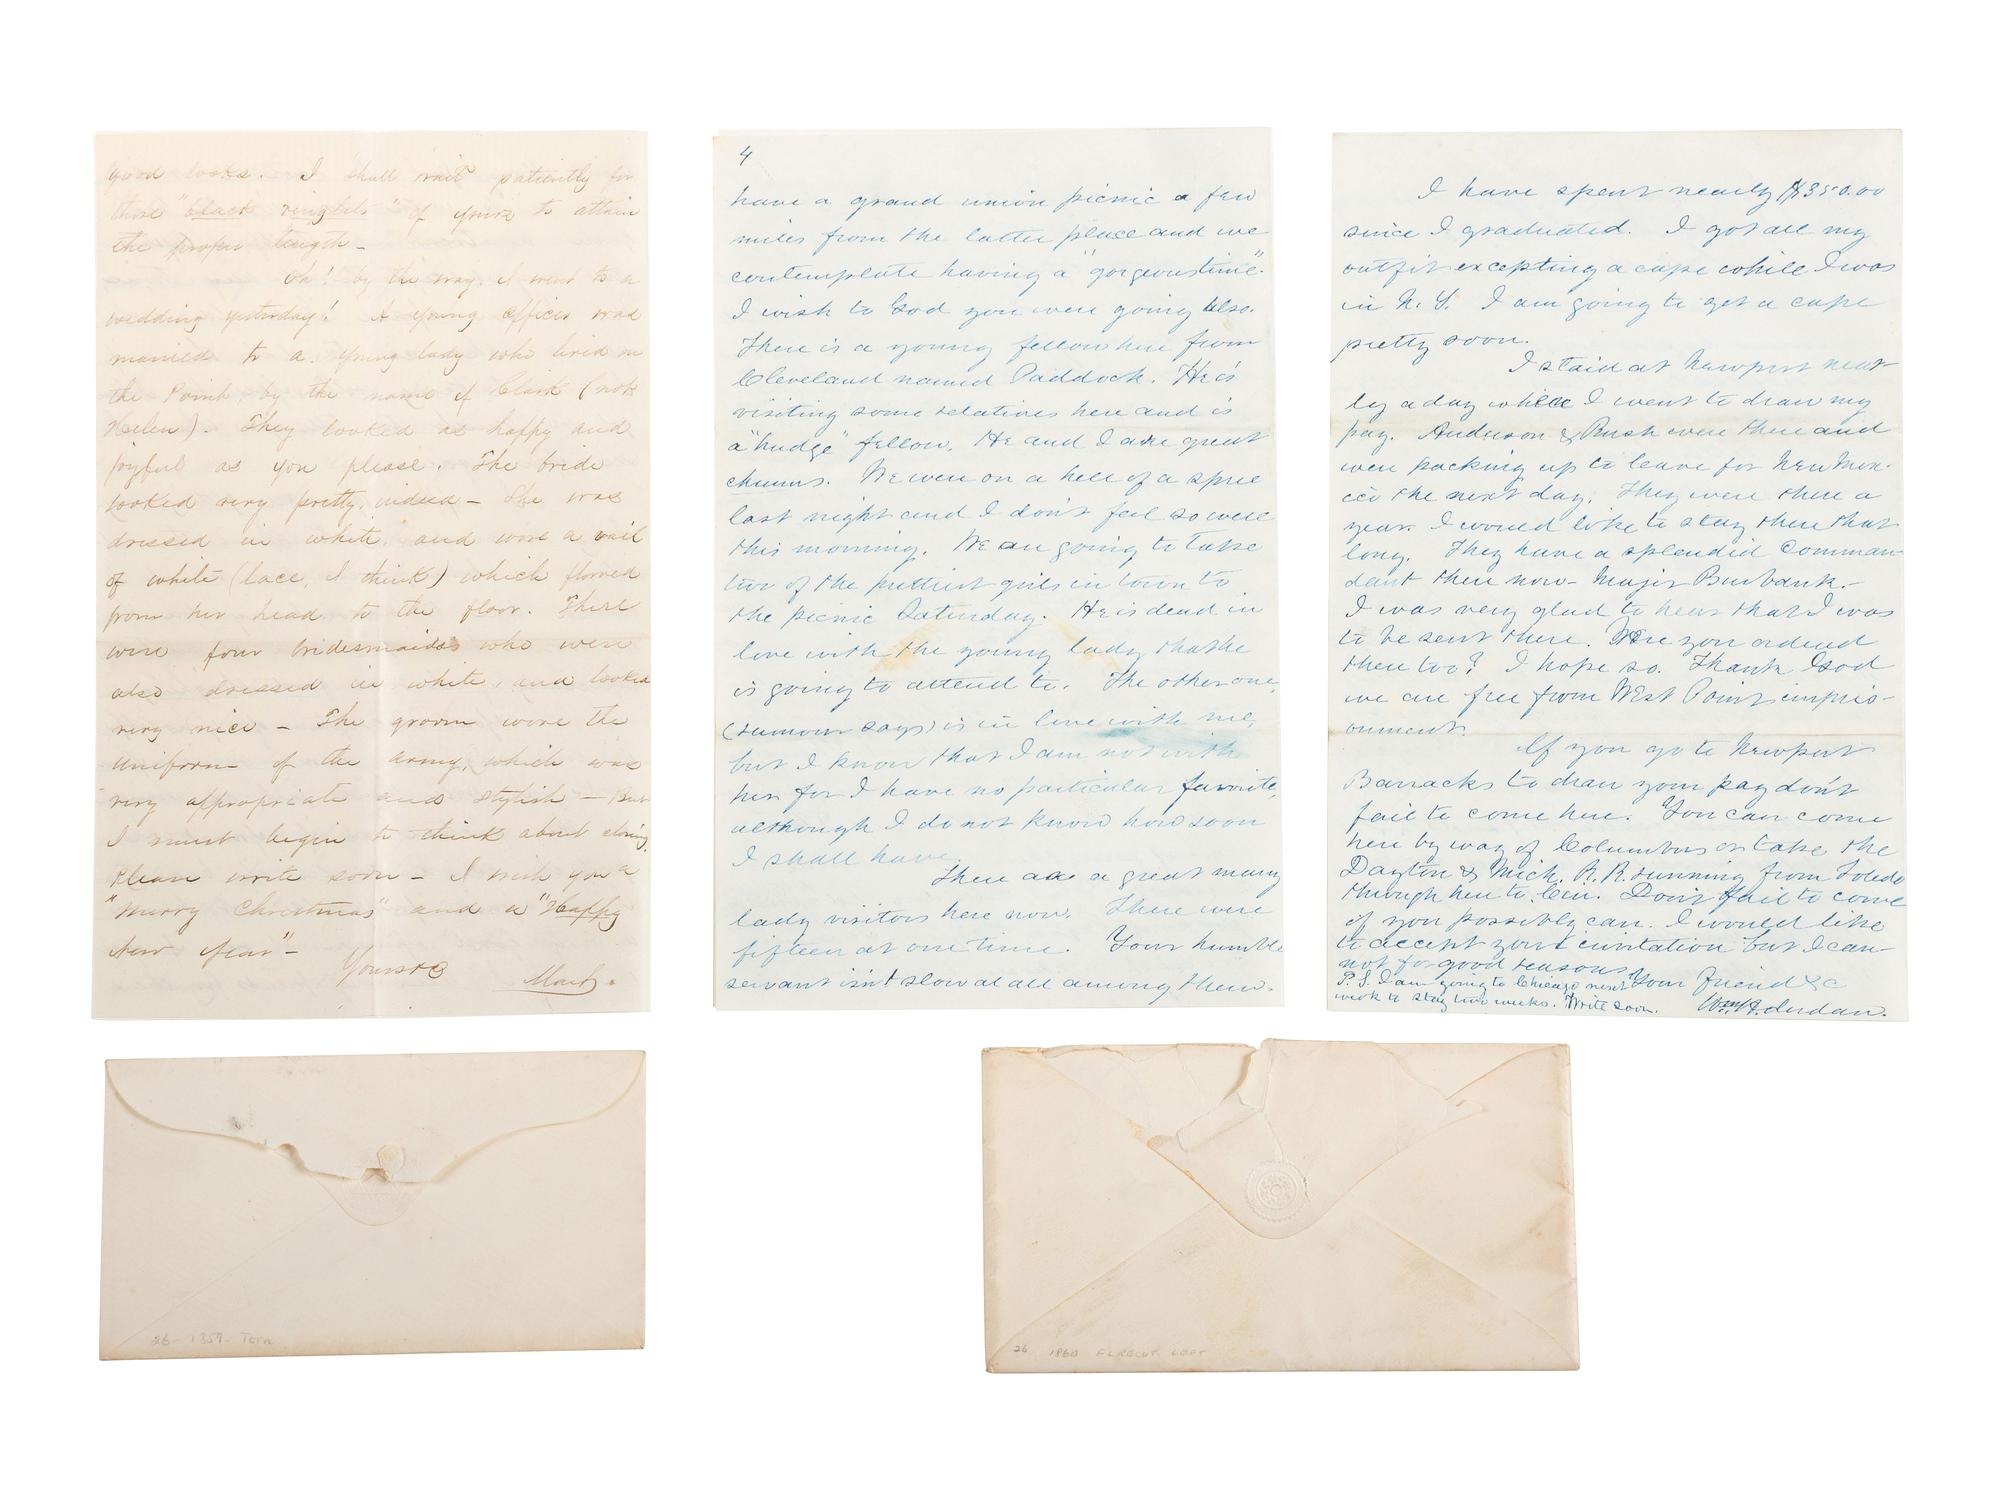 good looks. I shall wait patiently for
those "black ringlets" of yours to attain
the proper length -
Oh! by the way, I went to a
wedding yesterday! A young officer was
married to a young lady who lived on
the Point, by the name of Clark (not
Helen). They looked as happy and
joyful as you please. The bride
looked very pretty, indeed - She was
dressed in white, and wore a vail
of white (lace, I think) which flowed
from her head to the floor. There
were four bridesmaids who were
also dressed in white, and looked
very nice - The groom wore the
uniform of the army, which was
very appropriate and stylish - But
I must begin to think about closing.
Please write soon - I wish you a
"Merry Christmas" and a "Happy
New Year" -
Yours &c
26 - 1859 - Torn
4
have a grand union picnic a few
miles from the latter place and we
contemplate having a "gorgeous time".
I wish to God you were going also.
There is a young fellow here from
Cleveland named Paddock. He's
visiting some relatives here and is
a "hudge" fellow. He and I are great
chums. We were on a hell of a spree
last night and I don't feel so well
this morning. We are going to take
two of the prettiest girls in town to
the picnic Saturday. He is dead in
love with the young lady that he
is going to attend to. The other one,
(rumour says) is in love with me,
but I know that I am not with
her for I have no particular favorite,
although I do not know how soon
I shall have.
There are a great many
lady visitors here now. There were
fifteen at one time. Your humble
servant isn't slow at all among them.
I have spent nearly $350.00
since I graduated. I got all my
outfit excepting a cape while I was
in N. Y. I am going to get a cape
pretty soon.
I staid at Newport near-
ly a day while I went to draw my
pay. Anderson & Rush were there and
were packing up to leave for New Mex-
ico the next day. They were there a
year. I would like to stay there that
long. They have a splendid comman-
dant there now - Major Burbank. -
I was very glad to hear that I was
to be sent there. Were you ordered
there too? I hope so. Thank God
we are free from West Point impris-
onment.
If you go to Newport
Barracks to draw your pay don't
fail to come here. You can come
here by way of Columbus or take the
Dayton & Mich. R. R. running from Toledo
through here to Cin. Don't fail to come
if you possibly can. I would like
to accept your invitation but I can-
not for good reasons. Your Friend &c
P. S. I am going to Chicago next
week to stay two weeks. Write soon. Wm. H. Jordan.
26 1860